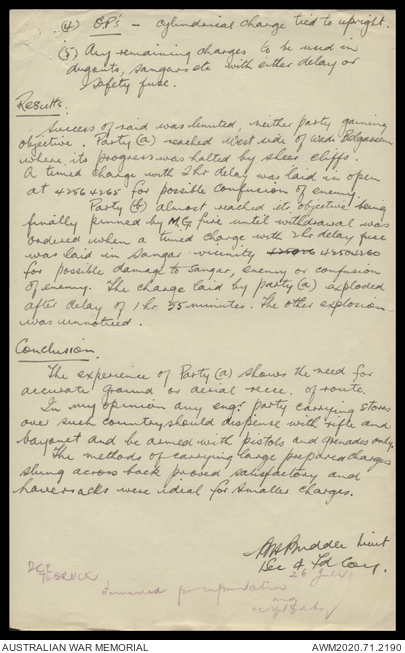 (4) O.P's – cylindrical charge tied to upright.
(5) Any remaining charges to be used in
dugouts, sangars etc with either delay or
safety fuse.
Results.
Success of raid was limited, neither party gaining
objective. Party (a) reached West side of Wadi Belgassem
where its progress was halted by sheer cliffs.
A timed charge with 2hr delay was laid in open
at 42564265 for possible confusion of enemy.
Party (b) almost reached its objective being
finally pinned by M.G. fire until withdrawal was
ordered when a timed charge with 2hr delay fuse
was laid in sangar vicinity 42504260
for possible damage to sangar, enemy or confusion
of enemy. The charge laid by party (a) exploded
after delay of 1 hr 35 minutes. The other explosion
was unnoticed.
Conclusion.
The experience of Party (a) shows the need for
accurate ground or aerial recce. of route.
In my opinion any engr party carrying stores
over such country should dispense with rifle and
bayonet and be armed with pistols and grenades only.
The methods of carrying large prepared charges
slung across back proved satisfactory and
haversacks were ideal for smaller charges.
Lieut
Sec 4 Fd Coy.
26 July
DCE
TOBRUK
Forwarded for information
AUSTRALIAN WAR MEMORIAL
AWM2020.71.2190